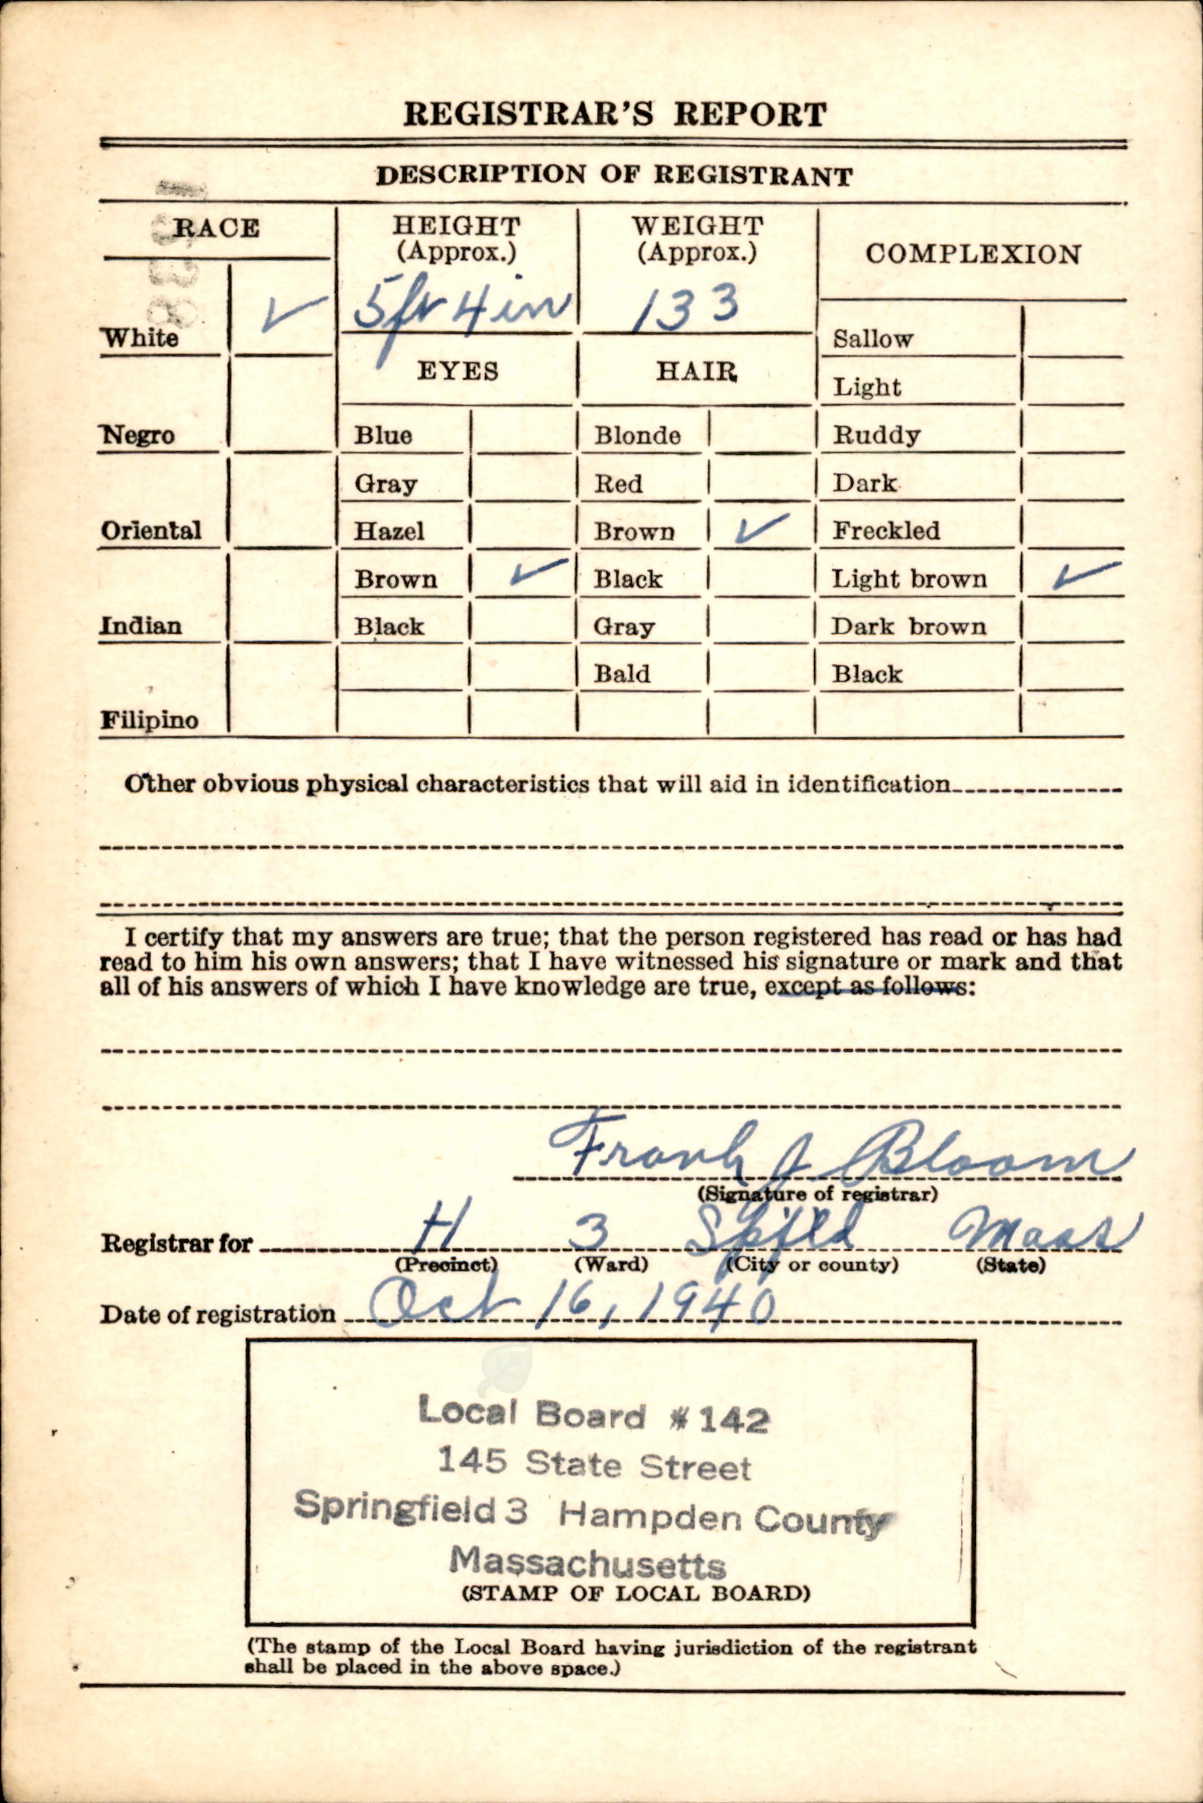 REGISTRAR'S REPORT
DESCRIPTION OF REGISTRANT
RACE
HEIGHT
(Approx.)
WEIGHT
(Approx.)
COMPLEXION
White ✓
5 ft 4 in
133
Sallow
EYES
HAIR
Light
Negro
Blue
Blonde
Ruddy
Gray
Red
Dark
Oriental
Hazel
Brown ✓
Freckled
Brown ✓
Black
Light brown ✓
Indian
Black
Gray
Dark brown
Bald
Black
Filipino
Other obvious physical characteristics that will aid in identification
I certify that my answers are true; that the person registered has read or has had
read to him his own answers; that I have witnessed his signature or mark and that
all of his answers of which I have knowledge are true, except as follows:
Frank J Bloom
(Signature of registrar)
Registrar for H 3 Spfld Mass
(Precinct) (Ward) (City or county) (State)
Date of registration Oct 16, 1940
Local Board # 142
145 State Street
Springfield 3 Hampden County
Massachusetts
(STAMP OF LOCAL BOARD)
(The stamp of the Local Board having jurisdiction of the registrant
shall be placed in the above space.)